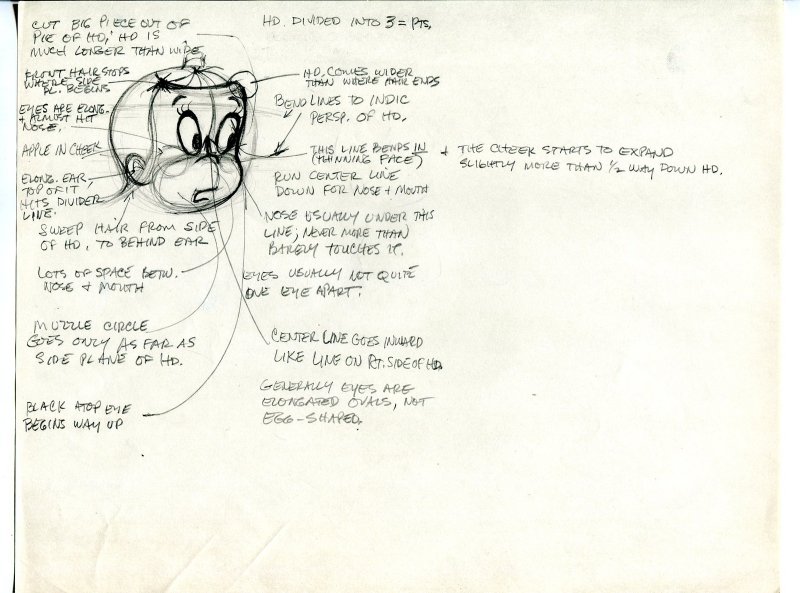 CUT BIG PIECE OUT OF
PIE OF HD, HD IS
MUCH LONGER THAN WIDE
HD. DIVIDED INTO 3 = PTS.
FRONT HAIR STOPS
WHERE SIDE
BL. BEGINS
EYES ARE ELONG.
+ ALMOST HIT
NOSE.
APPLE IN CHEEK
ELONG. EAR,
TOP OF IT
HITS DIVIDER
LINE.
SWEEP HAIR FROM SIDE
OF HD. TO BEHIND EAR
LOTS OF SPACE BETW.
NOSE + MOUTH
MUZZLE CIRCLE
GOES ONLY AS FAR AS
SIDE PLANE OF HD.
BLACK ATOP EYE
BEGINS WAY UP
HD. COMES WIDER
THAN WHERE HAIR ENDS
BEND LINES TO INDIC
PERSP. OF HD.
THIS LINE BENDS IN
(THINNING FACE)
+ THE CHEEK STARTS TO EXPAND
SLIGHTLY MORE THAN 1/2 WAY DOWN HD.
RUN CENTER LINE
DOWN FOR NOSE + MOUTH
NOSE USUALLY UNDER THIS
LINE; NEVER MORE THAN
BARELY TOUCHES IT.
EYES USUALLY NOT QUITE
ONE EYE APART.
CENTER LINE GOES INWARD
LIKE LINE ON RT. SIDE OF HD.
GENERALLY EYES ARE
ELONGATED OVALS, NOT
EGG-SHAPED.